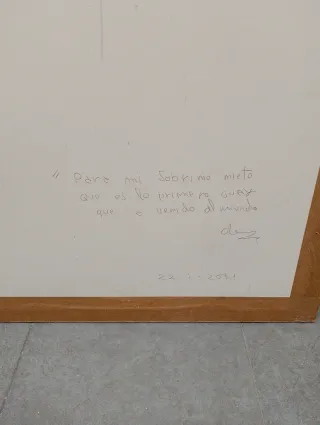 " Para mi Sobrino nieto
que es la primera
que a venido al mundo
22 - - 2021